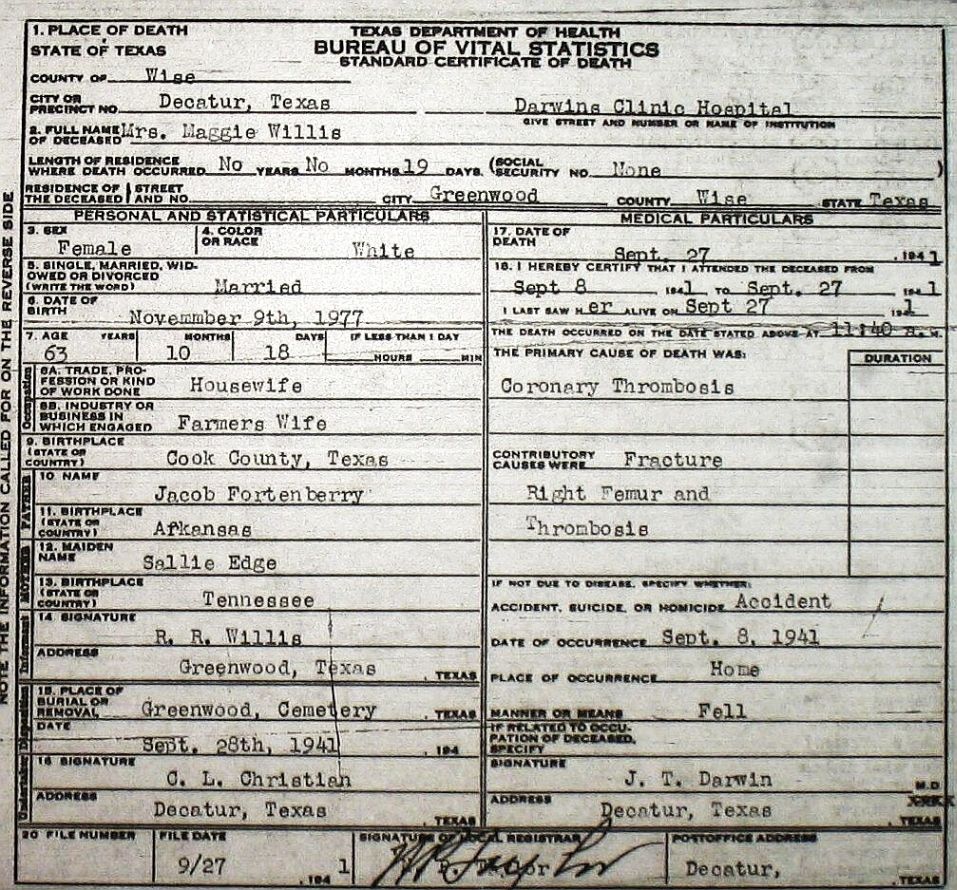 NOTE THE INFORMATION CALLED FOR ON THE REVERSE SIDE
1. PLACE OF DEATH
STATE OF TEXAS
TEXAS DEPARTMENT OF HEALTH
BUREAU OF VITAL STATISTICS
STANDARD CERTIFICATE OF DEATH
COUNTY OF Wise
CITY OR PRECINCT NO. Decatur, Texas Darwins Clinic Hospital
GIVE STREET AND NUMBER OR NAME OF INSTITUTION
2. FULL NAME OF DECEASED Mrs. Maggie Willis
LENGTH OF RESIDENCE WHERE DEATH OCCURRED No YEARS No MONTHS 19 DAYS. (SOCIAL SECURITY NO. None )
RESIDENCE OF THE DECEASED STREET AND NO. CITY Greenwood COUNTY Wise STATE Texas
PERSONAL AND STATISTICAL PARTICULARS
3. SEX Female
4. COLOR OR RACE White
5. SINGLE, MARRIED, WIDOWED OR DIVORCED (WRITE THE WORD) Married
6. DATE OF BIRTH Novemmber 9th, 1977
7. AGE YEARS MONTHS DAYS IF LESS THAN 1 DAY
63 10 18 HOURS MIN
Occupation
8A. TRADE, PROFESSION OR KIND OF WORK DONE Housewife
8B. INDUSTRY OR BUSINESS IN WHICH ENGAGED Farmers Wife
9. BIRTHPLACE (STATE OR COUNTRY) Cook County, Texas
FATHER
10 NAME Jacob Fortenberry
11. BIRTHPLACE (STATE OR COUNTRY) Arkansas
MOTHER
12. MAIDEN NAME Sallie Edge
13. BIRTHPLACE (STATE OR COUNTRY) Tennessee
Informant
14 SIGNATURE R. R. Willis
ADDRESS Greenwood, Texas , TEXAS
Disposition
15. PLACE OF BURIAL OR REMOVAL, Greenwood, Cemetery , TEXAS
DATE Sept. 28th, 1941 , 194
Undertaker
16 SIGNATURE C. L. Christian
ADDRESS Decatur, Texas , TEXAS
MEDICAL PARTICULARS
17. DATE OF DEATH Sept. 27 , 1941
18. I HEREBY CERTIFY THAT I ATTENDED THE DECEASED FROM
Sept 8 1941 TO Sept. 27 1941
I LAST SAW H er ALIVE ON Sept 27 1941
THE DEATH OCCURRED ON THE DATE STATED ABOVE AT 11:40 a. M.
THE PRIMARY CAUSE OF DEATH WAS: DURATION
Coronary Thrombosis
CONTRIBUTORY CAUSES WERE Fracture
Right Femur and
Thrombosis
IF NOT DUE TO DISEASE, SPECIFY WHETHER:
ACCIDENT, SUICIDE, OR HOMICIDE Accident
DATE OF OCCURRENCE Sept. 8, 1941
PLACE OF OCCURRENCE Home
MANNER OR MEANS Fell
IF RELATED TO OCCUPATION OF DECEASED, SPECIFY
SIGNATURE J. T. Darwin M.D
ADDRESS Decatur, Texas , TEXAS
20 FILE NUMBER
FILE DATE 9/27 , 194 1
SIGNATURE OF LOCAL REGISTRAR
POSTOFFICE ADDRESS Decatur, , TEXAS